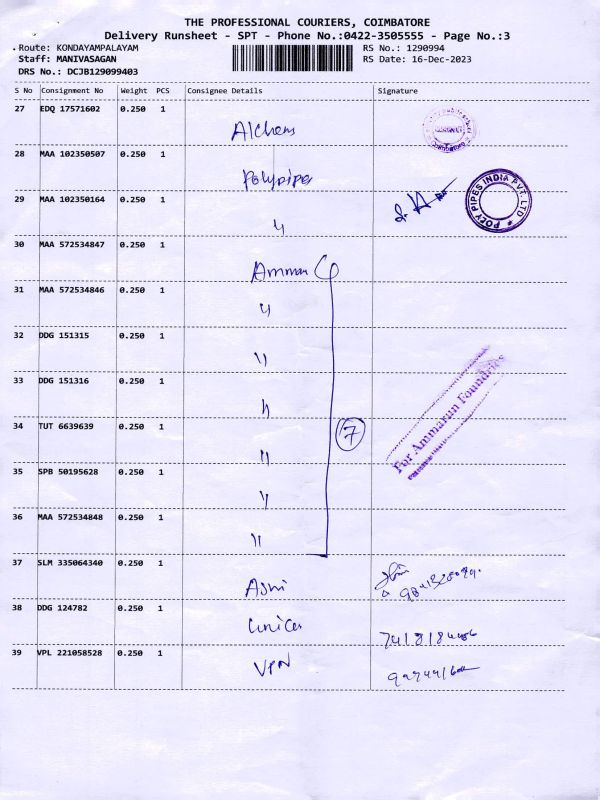 THE PROFESSIONAL COURIERS, COIMBATORE
Delivery Runsheet - SPT - Phone No.:0422-3505555 - Page No.:3
Route: KONDAYAMPALAYAM RS No.: 1290994
Staff: MANIVASAGAN RS Date: 16-Dec-2023
DRS No.: DCJB129099403
S No Consignment No Weight PCS Consignee Details Signature
27 EDQ 17571602 0.250 1
Alchems
28 MAA 102350507 0.250 1
Polypipes
29 MAA 102350164 0.250 1
〃
POLY PIPES INDIA PVT. LTD
30 MAA 572534847 0.250 1
Amman
31 MAA 572534846 0.250 1
〃
32 DDG 151315 0.250 1
〃
33 DDG 151316 0.250 1
〃
For Ammarun Foundries
34 TUT 6639639 0.250 1
7
〃
35 SPB 50195628 0.250 1
〃
36 MAA 572534848 0.250 1
〃
37 SLM 335064340 0.250 1
38 DDG 124782 0.250 1
39 VPL 221058528 0.250 1
VPN